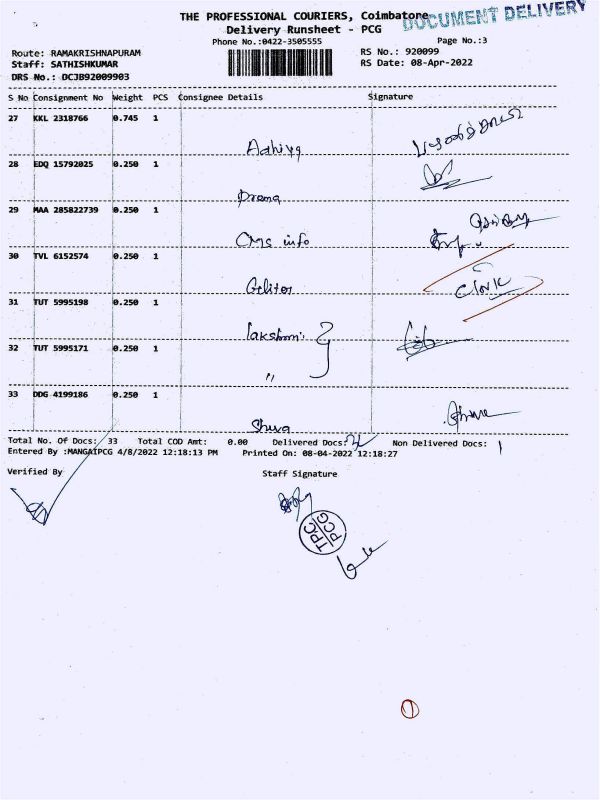 THE PROFESSIONAL COURIERS, Coimbatone
DOCUMENT DELIVERY
Delivery Runsheet - PCG
Phone No.:0422-3505555 Page No.:3
Route: RAMAKRISHNAPURAM RS No.: 920099
Staff: SATHISHKUMAR RS Date: 08-Apr-2022
DRS No.: DCJB92009903
S No Consignment No Weight PCS Consignee Details Signature
27 KKL 2318766 0.745 1
28 EDQ 15792025 0.250 1
Prema
29 MAA 285822739 0.250 1
CMS info
30 TVL 6152574 0.250 1
31 TUT 5995198 0.250 1
lakshmi
32 TUT 5995171 0.250 1
"
33 DDG 4199186 0.250 1
Shiva
Total No. Of Docs: 33 Total COD Amt: 0.00 Delivered Docs: Non Delivered Docs: 1
Entered By :MANGAIPCG 4/8/2022 12:18:13 PM Printed On: 08-04-2022 12:18:27
Verified By Staff Signature
TPC
PCG